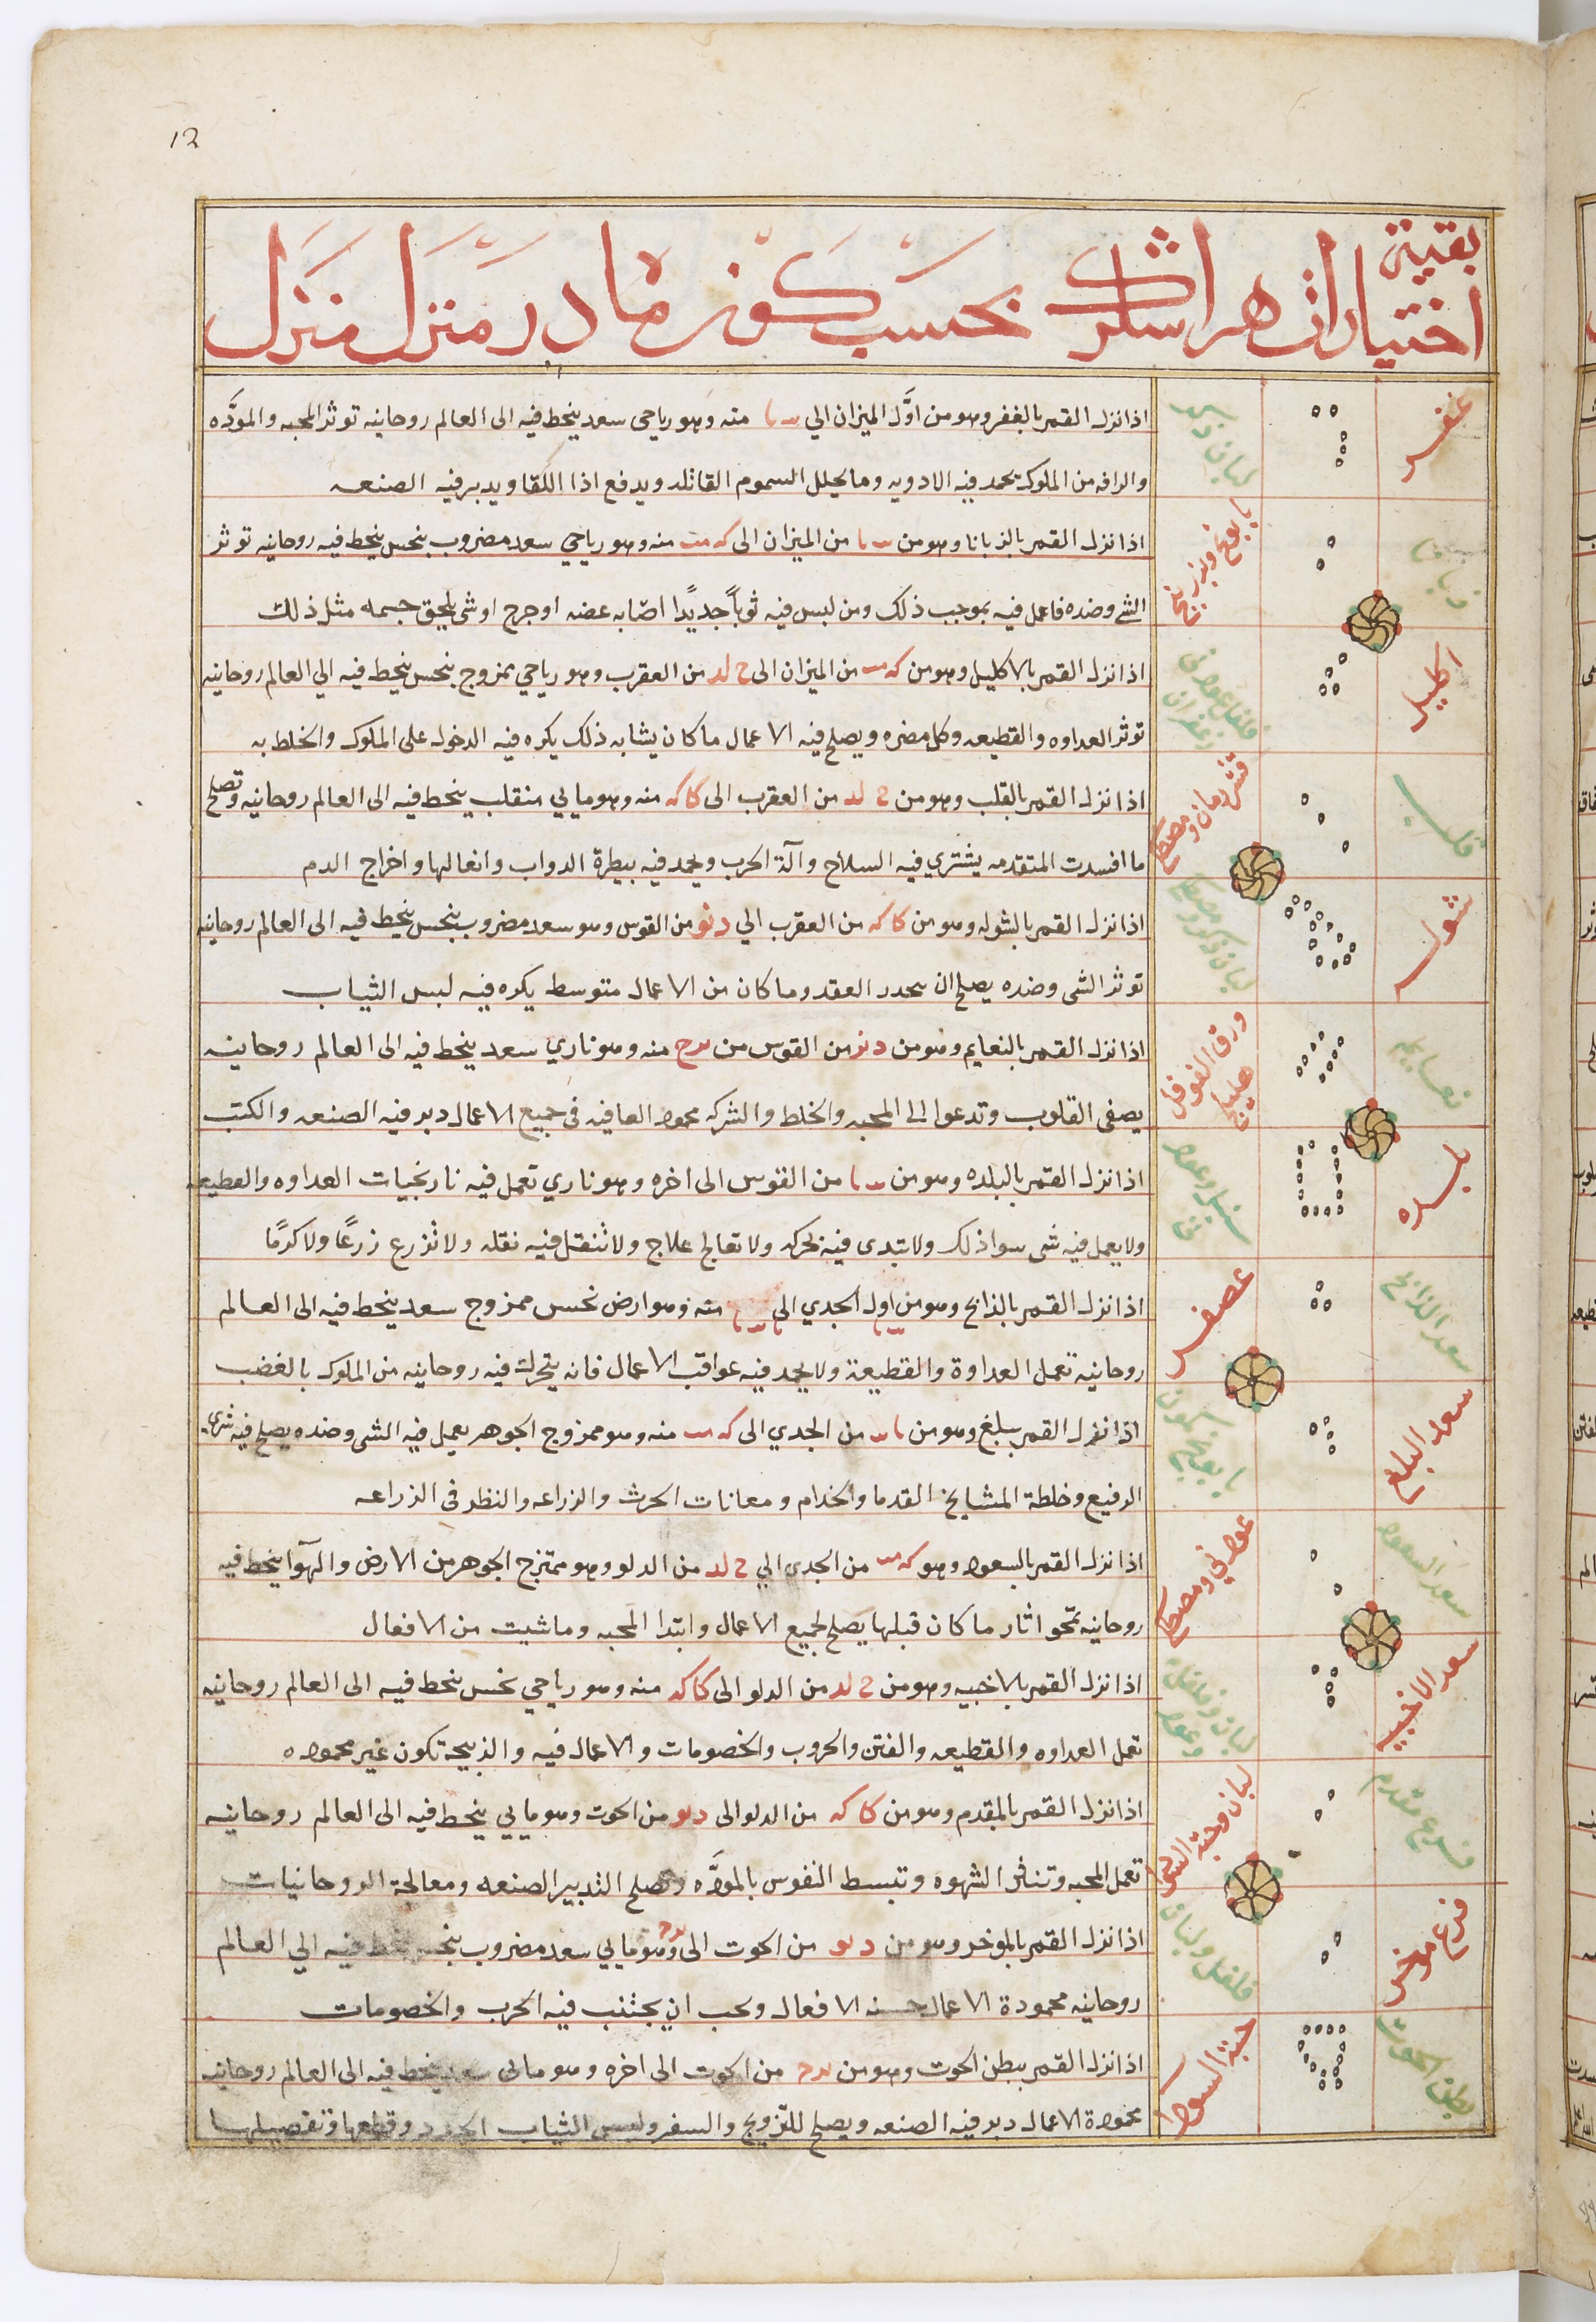 12
بقية
اختيارات هرامس بحسب كون ما در منزل منزل
غفر
لبان ذكر
اذا نزل القمر بالغفر وهو من اوّل الميزان الي منه وهو رياحى سعد ينحط فيه الى العالم روحانيه توثر المحبه والمودّه
والرافه من الملوك يحمد فيه الادويه وما يحلل السموم القاتله ويدفع اذا ويدبر فيه الصنعه
زبانا
بابونج وبدرنج
اذا نزل القمر بالزبانا وهو من من الميزان الى منه وهو رياحي سعد مضروب بنحس ينحط فيه روحانيه توثر
الشي وضده فاعمل فيه بموجب ذلك ومن لبس فيه ثوباً جديدًا اصابه عضه او جرح او شى يلحق جسمه مثل ذلك
اكليل
فلفل عود زعفران
اذا نزل القمر بالاكليل وهو من كه من الميزان الى ح لد من العقرب وهو رياحي ممزوج بنحس ينحط فيه الي العالم روحانيه
توثر العداوه والقطيعه وكل مضره ويصلح فيه الاعمال ما كان يشابه ذلك يكره فيه الدخول على الملوك والخلط به
قلب
قشر رمان ومصطكى
اذا نزل القمر بالقلب وهو من ح لد من العقرب الى كا كه منه وهو مايي منقلب ينحط فيه الى العالم روحانيه وتصلح
ما افسدت المتقدمه يشتري فيه السلاح وآلة الحرب ويحمد فيه بيطرة الدواب وانعالها واخراج الدم
شوله
لبان ذكر ومصطكى
اذا نزل القمر بالشوله وهو من كا كه من العقرب الي من القوس وهو سعد مضروب بنحس ينحط فيه الى العالم روحانيه
توثر الشى وضده يصلح ان العقد وما كان من الاعمال متوسط يكره فيه لبس الثياب
نعايم
ورق الفوفل هليلج
اذا نزل القمر بالنعايم وهو من من القوس من منه وهو ناري سعد ينحط فيه الى العالم روحانيه
يصفى القلوب وتدعوا الى المحبه والخلط والشركه محمود العافيه فى جميع الاعمال دبر فيه الصنعه والكتب
بلده
سنبل وعود
اذا نزل القمر بالبلده وهو من من القوس الى اخره وهو ناري تعمل فيه نارنجيات العداوه والقطيعه
ولا يعمل فيه شى سوا ذلك ولا تبتدى فيه بحركه ولا تعالج علاج ولا تنتقل فيه نقله ولا تزرع زرعًا ولا كرمًا
سعد الذابح
عصفر
اذا نزل القمر بالذابح وهو من اول الجدي الى منه وهو ارض نحس ممزوج سعد ينحط فيه الى العالم
روحانيه تعمل العداوة والقطيعة ولا يحمد فيه عواقب الاعمال فانه يتحرك فيه روحانيه من الملوك بالغضب
سعد البلع
اذا نزل القمر ببلع وهو من من الجدي الى منه وهو ممزوج الجوهر يعمل فيه الشى وضده يصلح فيه شرى
الرفيع وخلطة المشايخ القدما والخدام ومعانات الحرث والزراعه والنظر في الزراعه
سعد السعود
عود نى ومصطكى
اذا نزل القمر بالسعود وهو من الجدى الي ح لد من الدلو وهو ممتزج الجوهر من الارض والهوآ ينحط فيه
روحانيه تمحو اثار ما كان قبلها يصلح لجميع الاعمال وابتدا المحبه وما شيت من الافعال
سعد الاخبيه
اذا نزل القمر بالاخبيه وهو من ح لد من الدلو الى كا كه منه وهو رياحي نحس ينحط فيه الى العالم روحانيه
تعمل العداوه والقطيعه والفتن والحروب والخصومات والاعمال فيه والذبيحة تكون غير محموده
فرع مقدم
لبان وحبة السودا
اذا نزل القمر بالمقدم وهو من كا كه من الدلو الى من الحوت وهو مايي ينحط فيه الى العالم روحانيه
تعمل المحبه وتنافر الشهوه وتبسط النفوس بالمودّه وتصلح التدبير الصنعه ومعالجة الروحانيات
فرع موخر
فلفل ولبان
اذا نزل القمر بالموخر وهو من من الحوت الى وهو مايي سعد مضروب ينحط فيه الي العالم
روحانيه محمودة الاعمال حسنه الافعال ويحب ان يجتنب فيه الحرب والخصومات
بطن الحوت
حبة السودا
اذا نزل القمر ببطن الحوت وهو من من الحوت الى اخره وهو مائى سعد ينحط فيه الى العالم روحانيه
محمودة الاعمال دبر فيه الصنعه ويصلح للتزويج والسفر ولبس الثياب الجدد وقطعها وتفصيلها